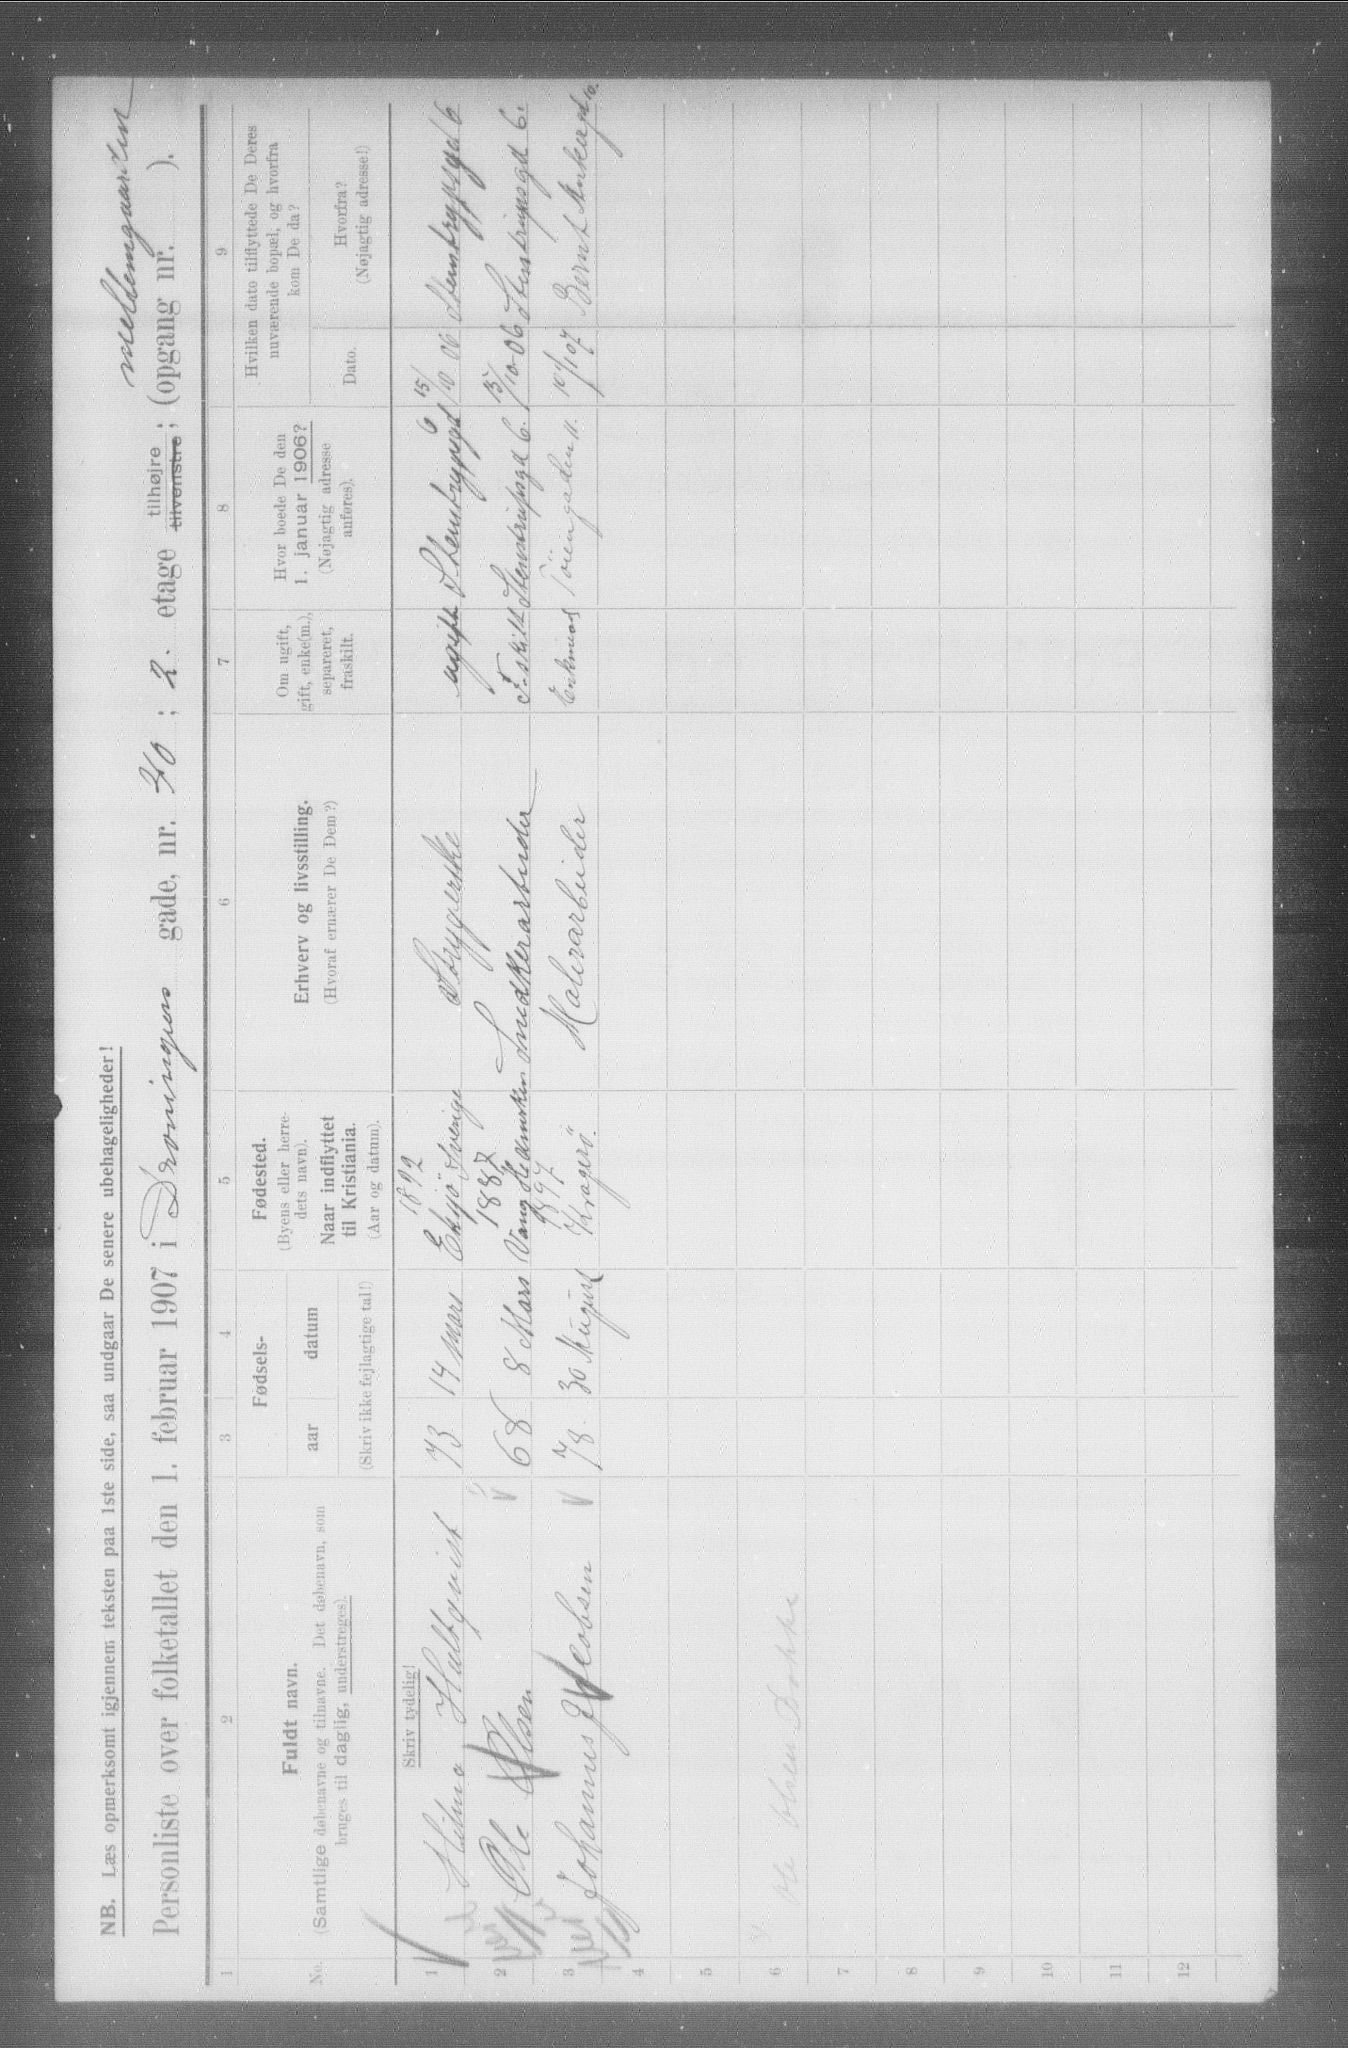 mellemgaarden
NB. Læs opmerksomt igjennem teksten paa 1ste side, saa undgaar De senere ubehageligheder!
Personliste over folketallet den 1. februar 1907 i Dronningens gade, nr. 40 ; 2. etage tilhøjre tilvenstre ; (opgang nr. ).
1 2 3 4 5 6 7 8 9
No.
Fuldt navn.
(Samtlige døbenavne og tilnavne. Det døbenavn, som
bruges til daglig, understreges).
Fødsels-
aar datum
(Skriv ikke fejlagtige tal!)
Fødested.
(Byens eller herre-
dets navn).
Naar indflyttet
til Kristiania.
(Aar og datum).
Erhverv og livsstilling.
(Hvoraf ernærer De Dem?)
Om ugift,
gift, enke(m.),
separeret,
fraskilt.
Hvor boede De den
1. januar 1906?
(Nøjagtig adresse
anføres).
Hvilken dato tilflyttede De Deres
nuværende bopæl, og hvorfra
kom De da?
Dato.
Hvorfra?
(Nøjagtig adresse!)
Skriv tydelig!
1 Hilma Hultqvist 73 14 mars 1892 Eksjö Sverige Strygerske ugift Stenstrupsgd 6 15/10 06 Stenstrupsgd 6
2 Ole Olsen 68 8 Mars 1887 Vang Hedemarken Snedkerarbeider F. skilt Stenstrupsgd 6. 15/10-06 Stenstrupsgd 6.
3 Johannes Jacobsen 78. 30 August 1897 Kragerø. Malerarbeider Enkemand Töiengaden 11. 10/1 07 Bernt Ankersgd
4
5
6 Ole Olsen
7
8
9
10
11
12